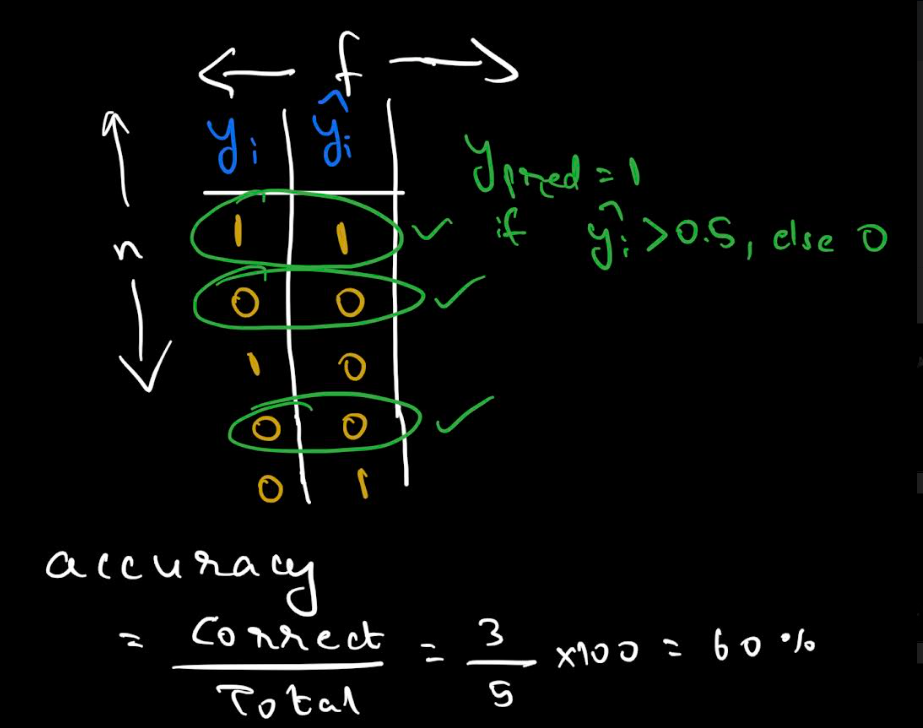 ← f →
n
y_i ŷ_i
1 1 ✓
0 0 ✓
1 0
0 0 ✓
0 1
y_pred = 1
if ŷ_i > 0.5, else 0
accuracy
= Correct / Total = 3 / 5 × 100 = 60 %